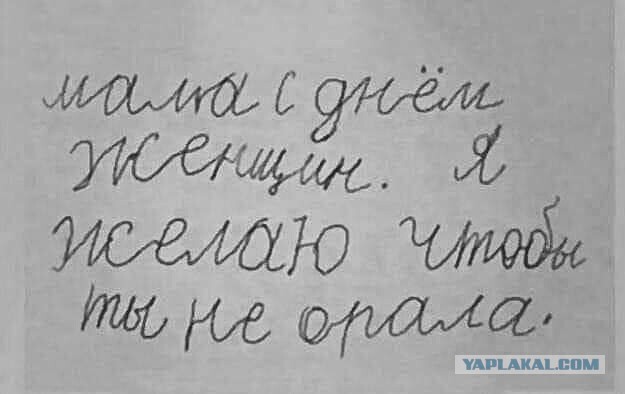 мама с днём
женщин. Я
желаю чтобы
ты не орала.
YAPLAKAL.COM